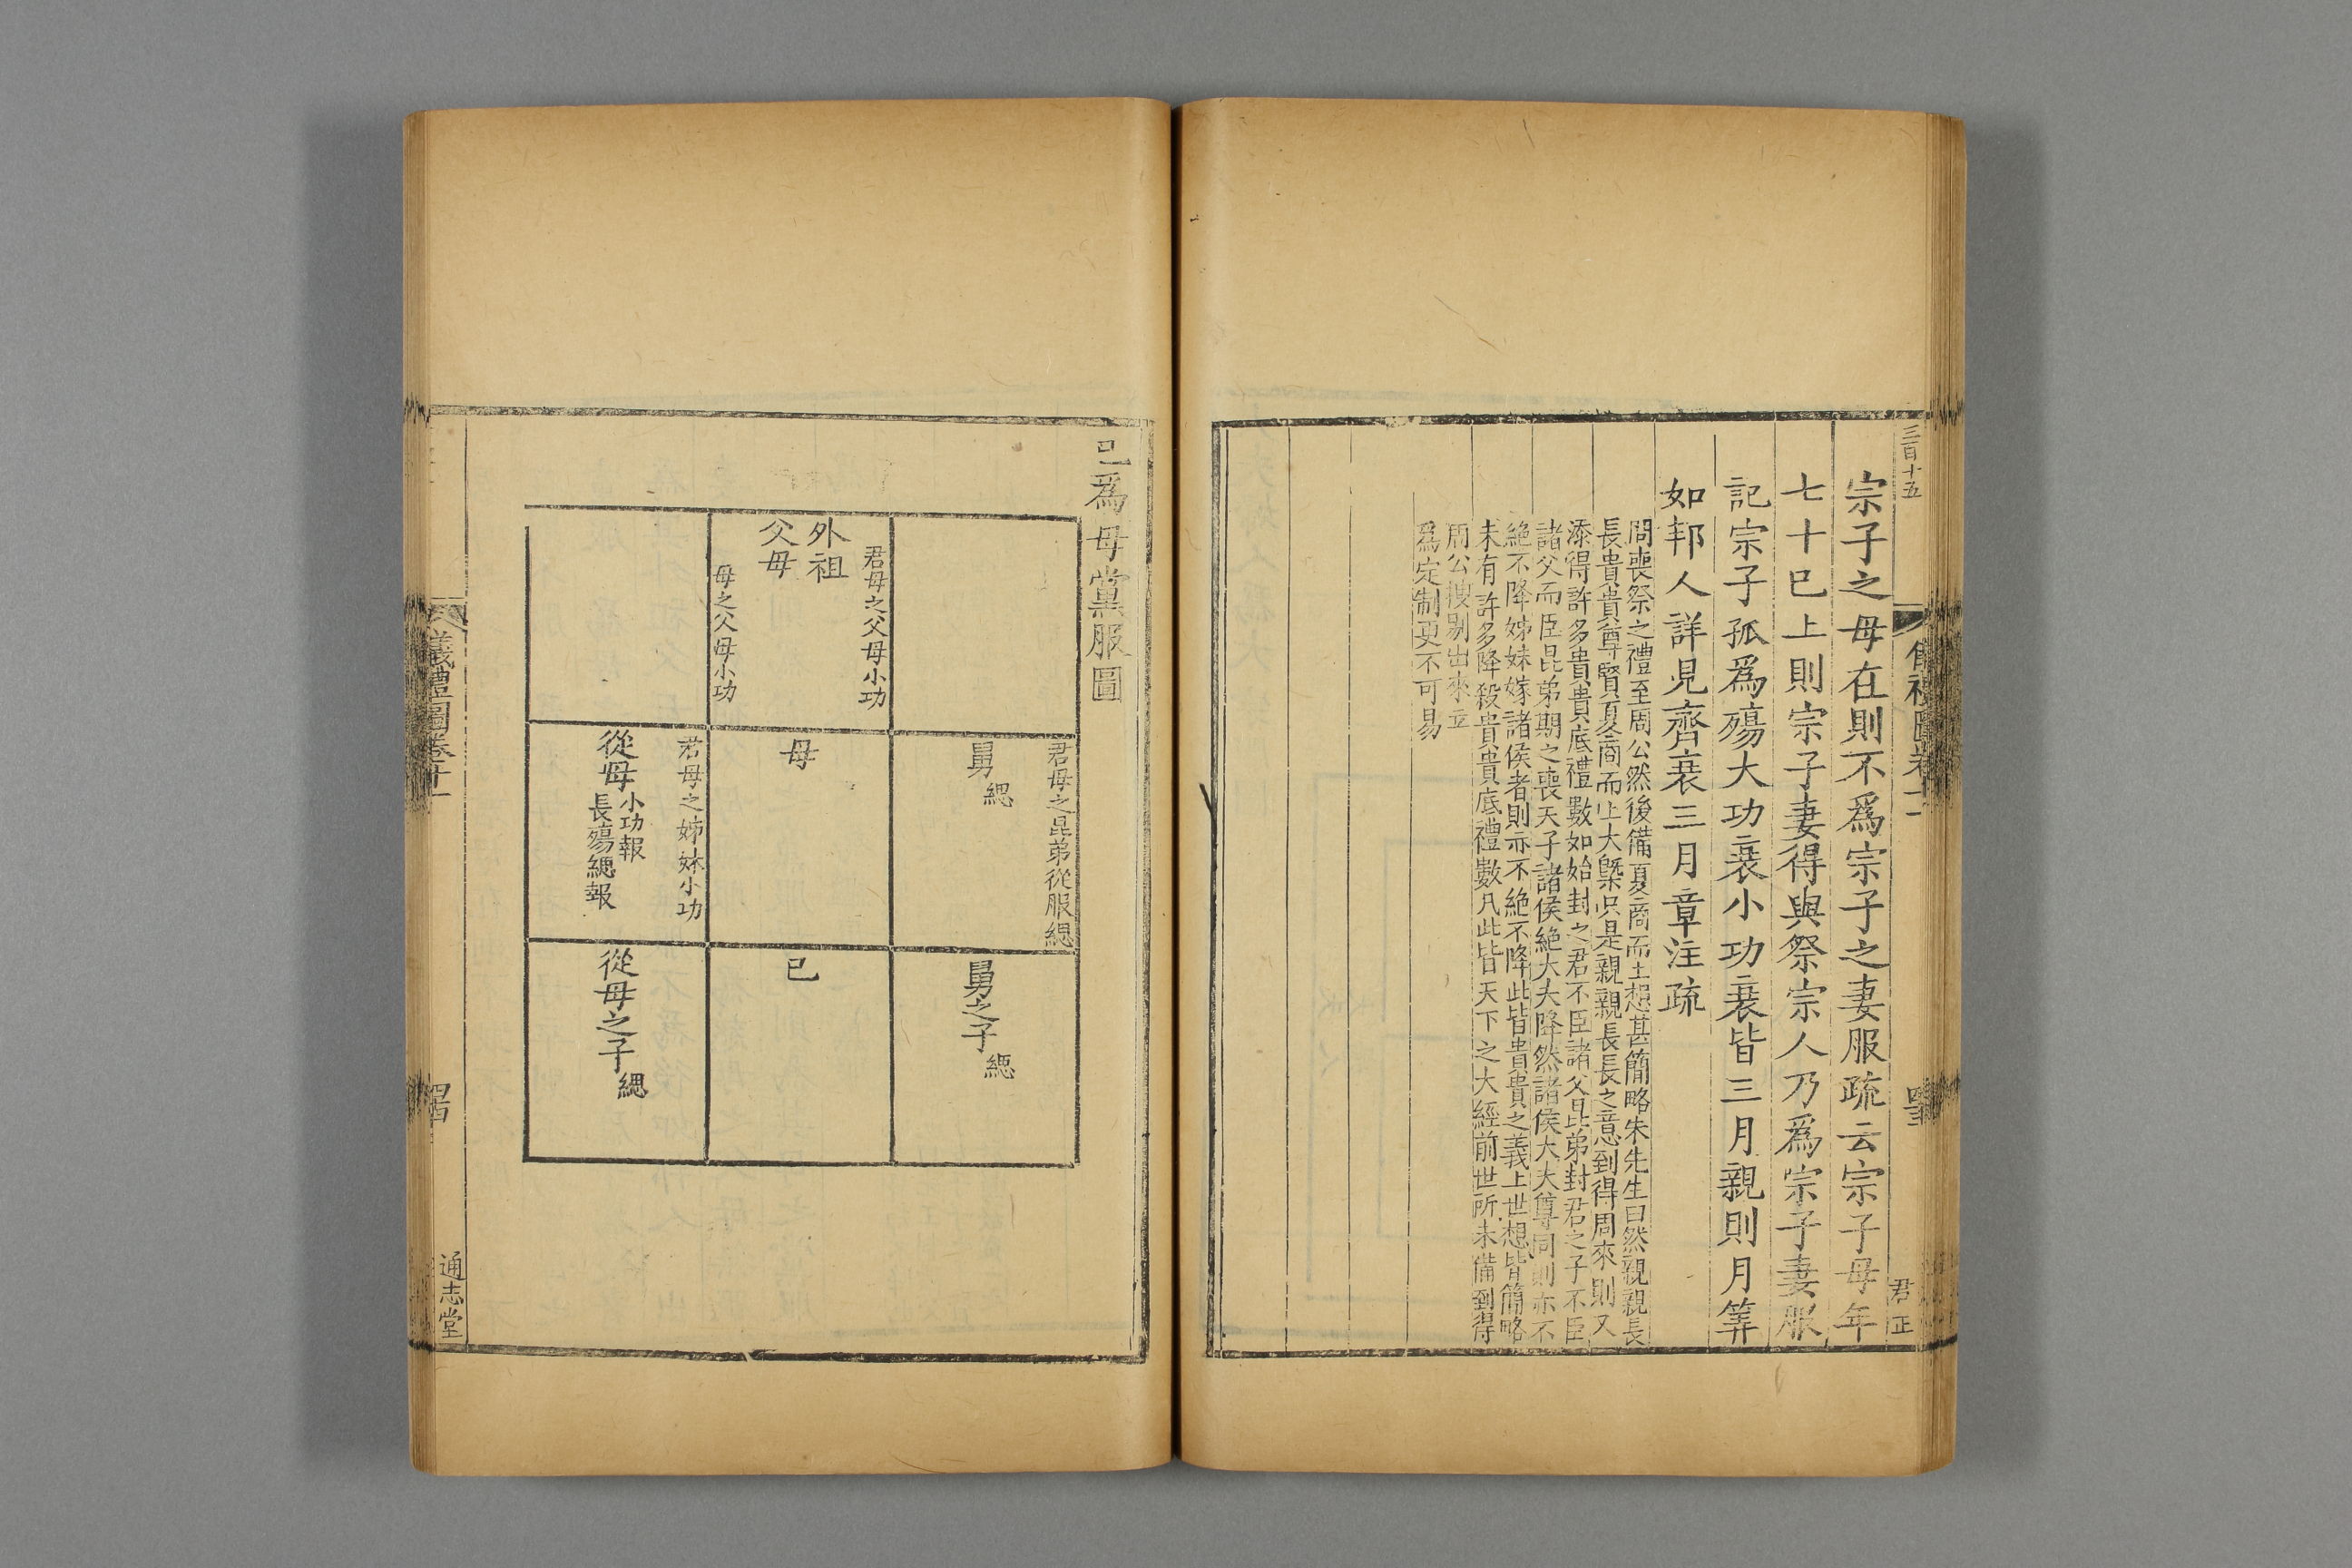 三百十五
君正
宗子之母在則不爲宗子之妻服疏云宗子母年
七十已上則宗子妻得與祭宗人乃爲宗子妻服
記宗子孤爲殤大功衰小功衰皆三月親則月筭
如邦人詳見齊衰三月章注疏
問喪祭之禮至周公然後備夏商而上想甚簡略朱先生曰然親親長
長貴貴尊賢夏商而上大槩只是親親長長之意到得周來則又
添得許多貴貴底禮數如始封之君不臣諸父昆弟封君之子不臣
諸父而臣昆弟期之喪天子諸侯絶大夫降然諸侯大夫尊同則亦不
絶不降姊妹嫁諸侯者則亦不絶不降此皆貴貴之義上世想皆簡略
未有許多降殺貴貴底禮數凡此皆天下之大經前世所未備到得
周公搜剔出來立
爲定制更不可易
已爲母黨服圖
君母之父母小功
外祖
父母
母之父母小功
君母之昆弟從服緦
舅
緦
母
君母之姊妹小功
從母
小功報
長殤緦報
舅之子
緦
已
從母之子
緦
儀禮圖卷十一
通志堂